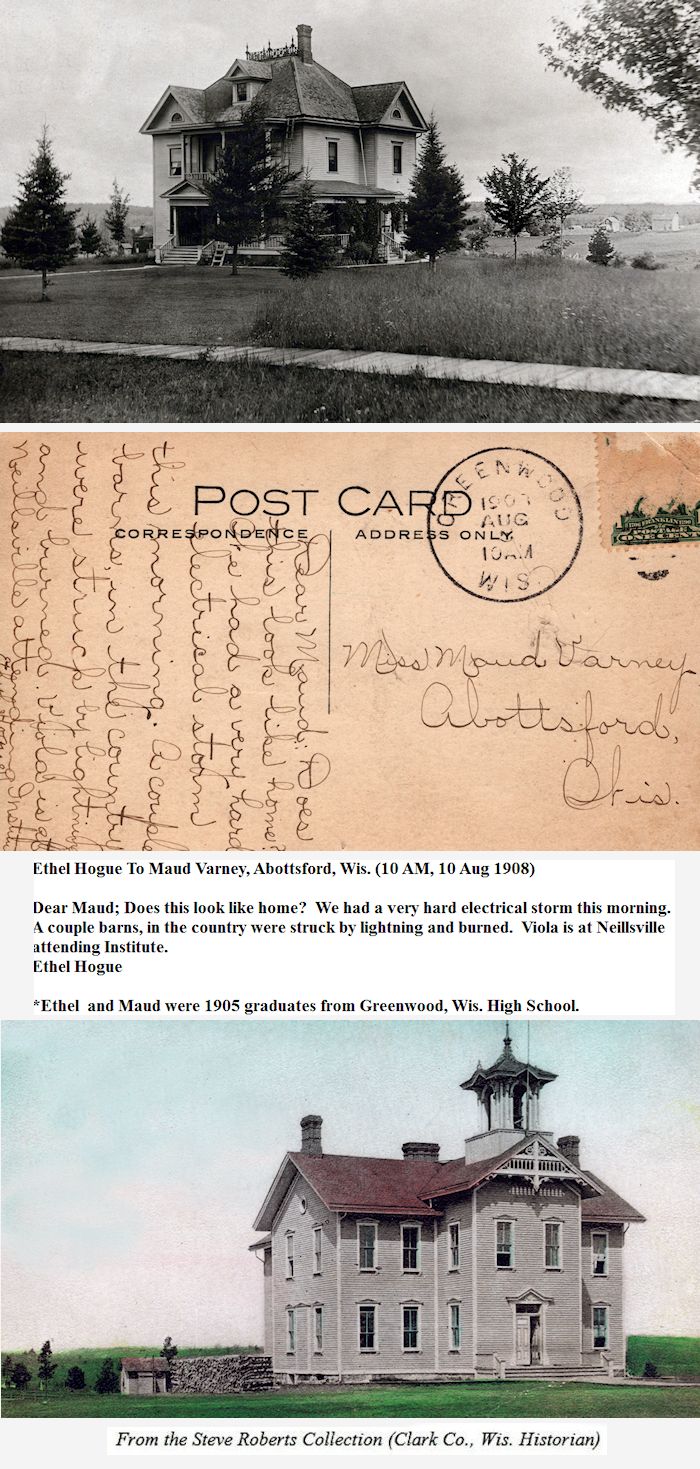 POST CARD
CORRESPONDENCE
ADDRESS ONLY
GREENWOOD
AUG
10AM
WIS
1706 FRANKLIN 1790
POSTAGE
ONE CENT
Dear Maud: Does
this look like home?
We had a very hard
electrical storm
this morning. A couple
barns in the country
were struck by
and burned. Viola is at
Neillsville
Miss Maud Varney
Abottsford,
Wis.
Ethel Hogue To Maud Varney, Abottsford, Wis. (10 AM, 10 Aug 1908)
Dear Maud; Does this look like home? We had a very hard electrical storm this morning.
A couple barns, in the country were struck by lightning and burned. Viola is at Neillsville
attending Institute.
Ethel Hogue
*Ethel and Maud were 1905 graduates from Greenwood, Wis. High School.
From the Steve Roberts Collection (Clark Co., Wis. Historian)